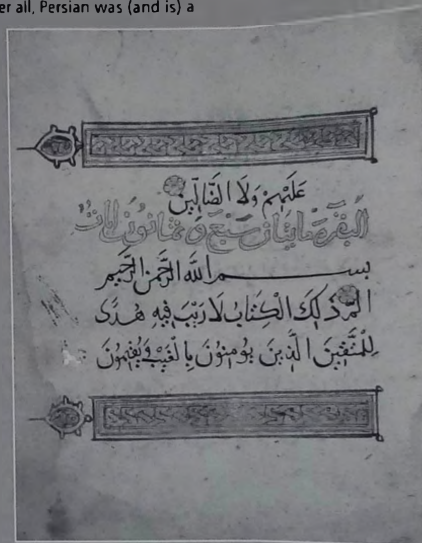 er all, Persian was (and is) a
عَلَيْهِمْ وَلَا الضَّالِّينَ
البقرة مايتان وسبع وثمانون ايات
بسم الله الرَّحْمٰنِ الرَّحِيمِ
الم ذَلِكَ الْكِتَابُ لَا رَيْبَ فِيهِ هُدًى
لِلْمُتَّقِينَ الَّذِينَ يُومِنُونَ بِالْغَيْبِ وَيُقِيمُونَ